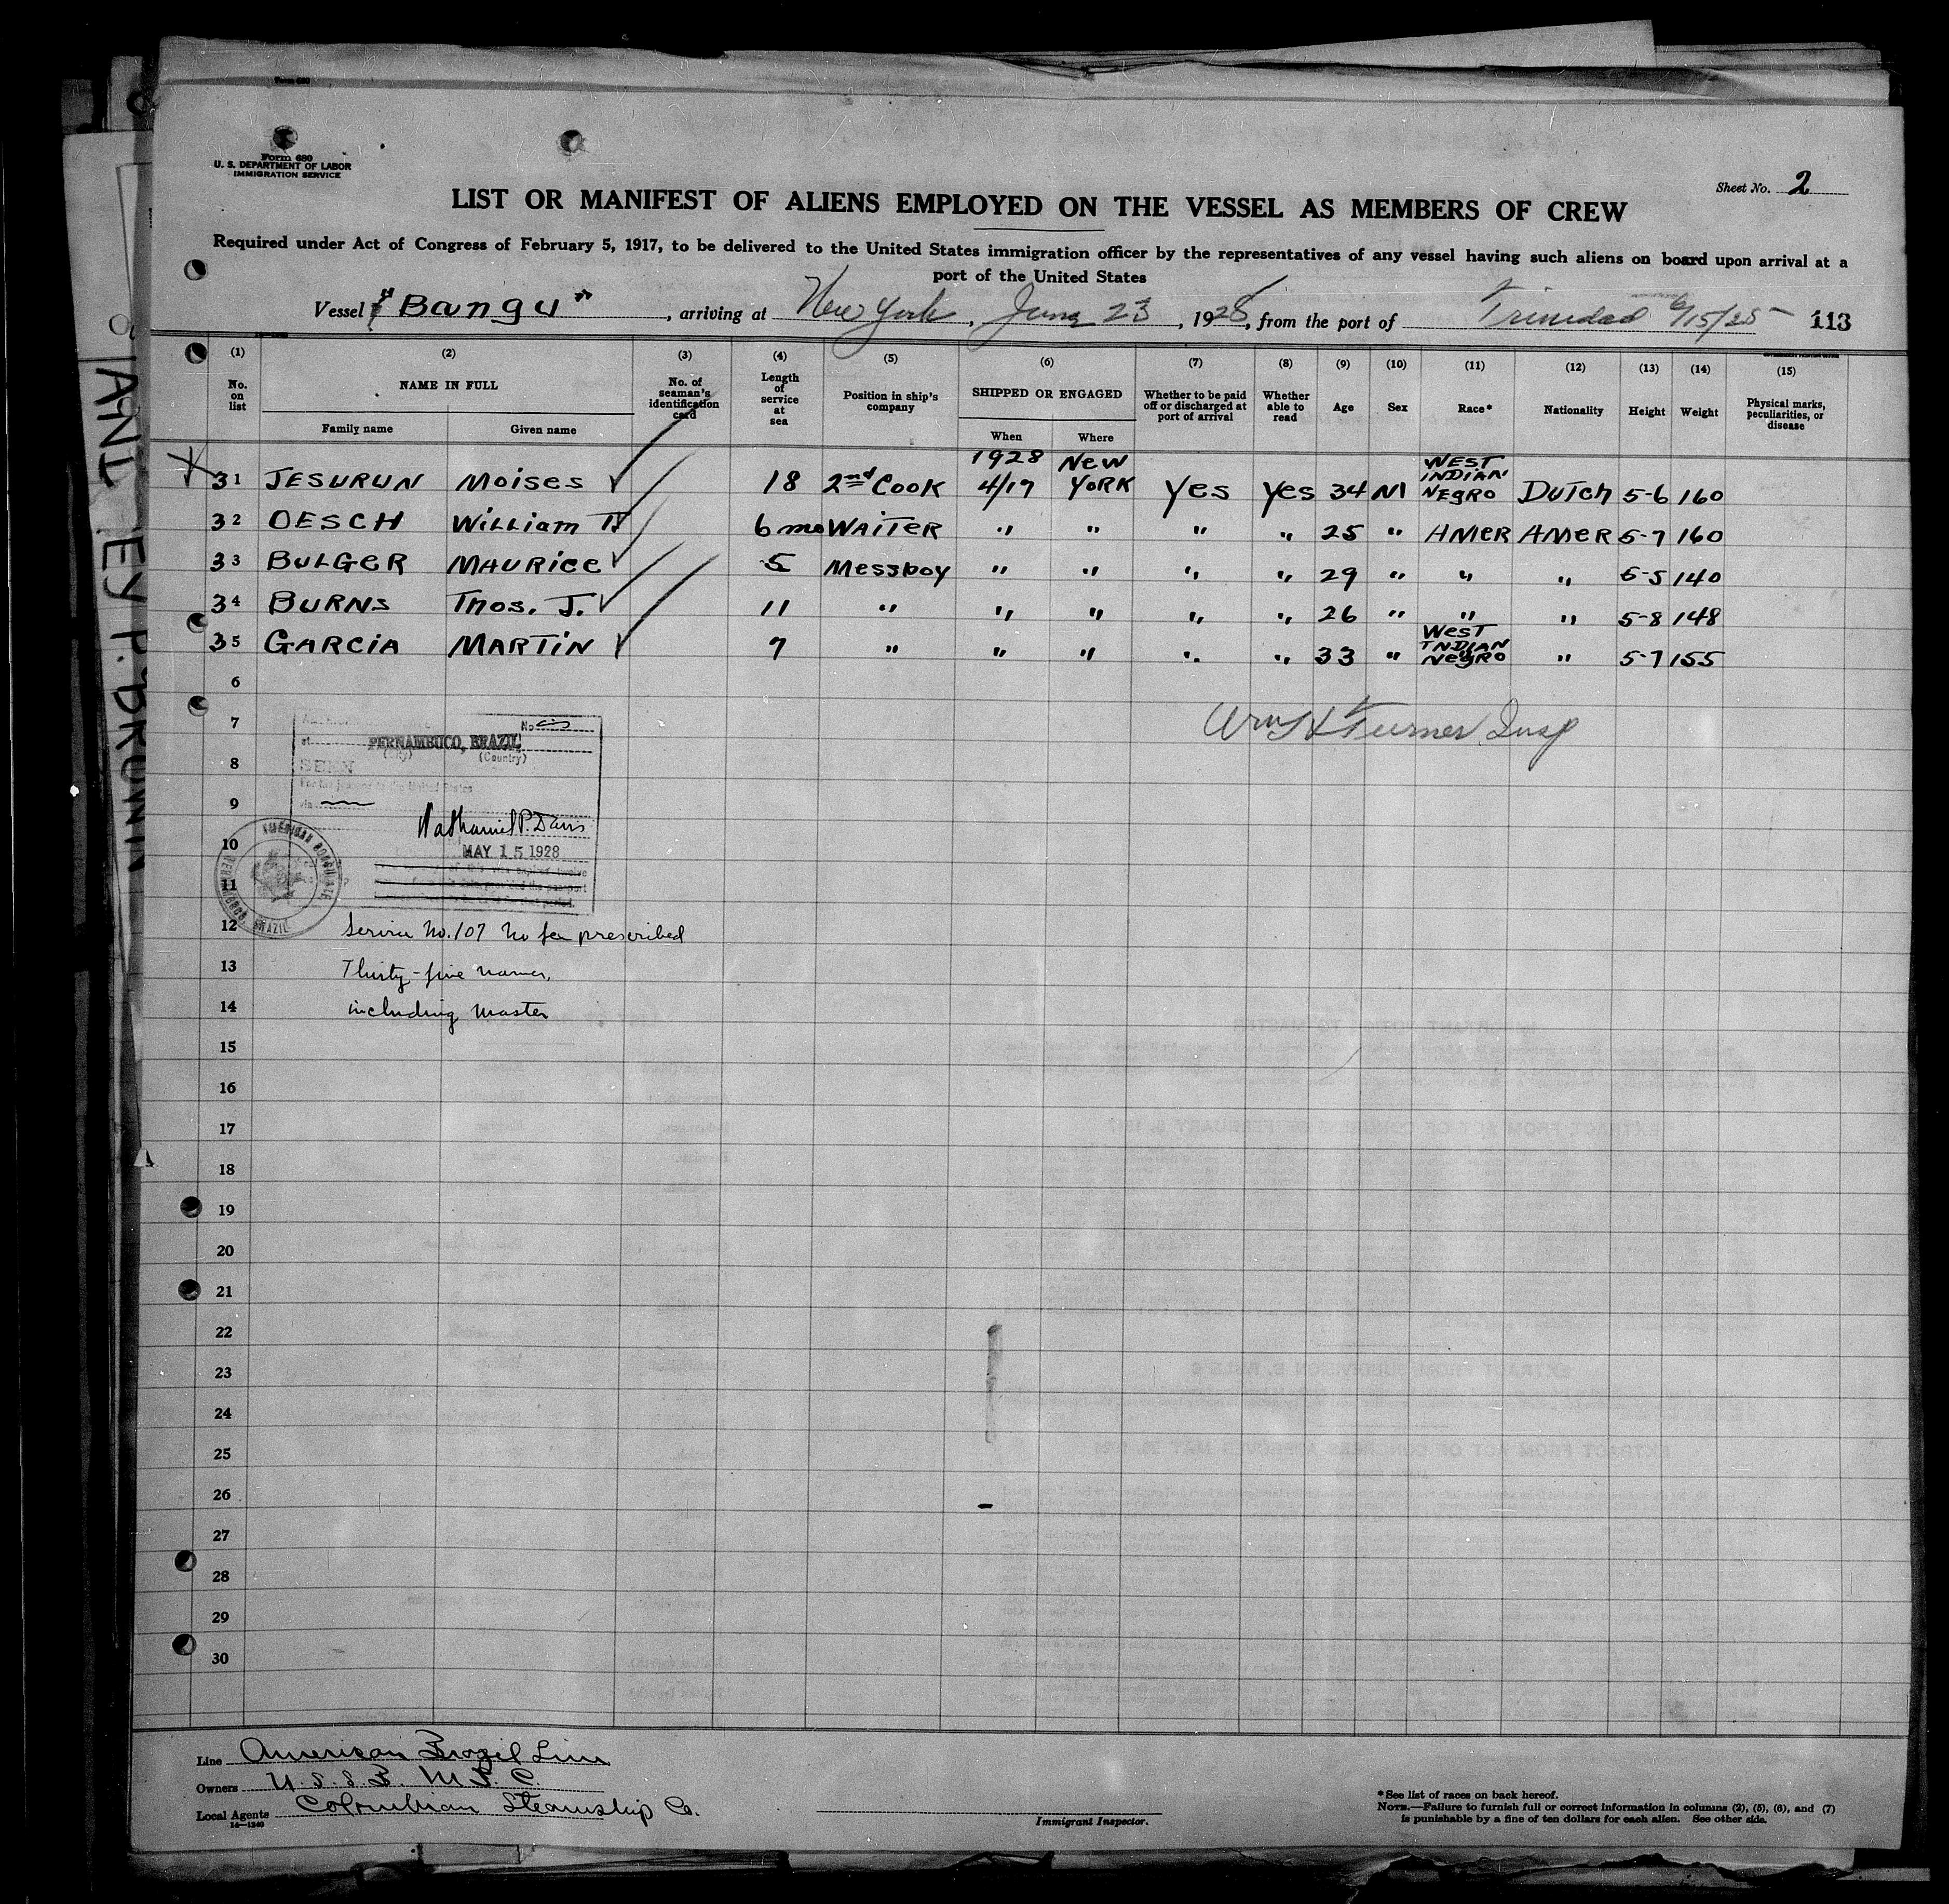 Form 680
U. S. DEPARTMENT OF LABOR
IMMIGRATION SERVICE
Sheet No. 2
LIST OR MANIFEST OF ALIENS EMPLOYED ON THE VESSEL AS MEMBERS OF CREW
Required under Act of Congress of February 5, 1917, to be delivered to the United States immigration officer by the representatives of any vessel having such aliens on board upon arrival at a
port of the United States
Vessel "Bangu", arriving at New York, June 23, 1928, from the port of Trinidad 6/15/28 113
(1) (2) (3) (4) (5) (6) (7) (8) (9) (10) (11) (12) (13) (14) (15)
No. on list NAME IN FULL Family name Given name No. of seaman's identification card Length of service at sea Position in ship's company SHIPPED OR ENGAGED When Where Whether to be paid off or discharged at port of arrival Whether able to read Age Sex Race* Nationality Height Weight Physical marks, peculiarities, or disease
31 JESURUN Moises 18 2nd Cook 1928 4/17 New YORK Yes Yes 34 M WEST INDIAN NEGRO DUTCH 5-6 160
32 OESCH William T. 6 mo WAITER " " " " 25 " AMER AMER 5-7 160
33 BULGER MAURICE 5 Messboy " " " " 29 " " " 5-5 140
34 BURNS Thos. J. 11 " " " " " 26 " " " 5-8 148
35 GARCIA MARTIN 7 " " " " " 33 " WEST INDIAN NEGRO " 5-7 155
6
7
Wm H Turner Insp
No
at PERNAMBUCO, BRAZIL
(City) (Country)
8
SEEN
For the journey to the United States
9
via
Nathaniel P. Davis
10
MAY 15 1928
AMERICAN CONSULATE
PERNAMBUCO BRAZIL
11
12
Service No. 107 No fee prescribed
13
Thirty-five names,
14
including Master
15
16
17
18
19
20
21
22
23
24
25
26
27
28
29
30
Line American Brazil Line
Owners U.S.S.B. M.F.C.
Local Agents Colombian Steamship Co.
14—1240
Immigrant Inspector.
*See list of races on back hereof.
NOTE.—Failure to furnish full or correct information in columns (2), (5), (6), and (7)
is punishable by a fine of ten dollars for each alien. See other side.
EY P. BROWN